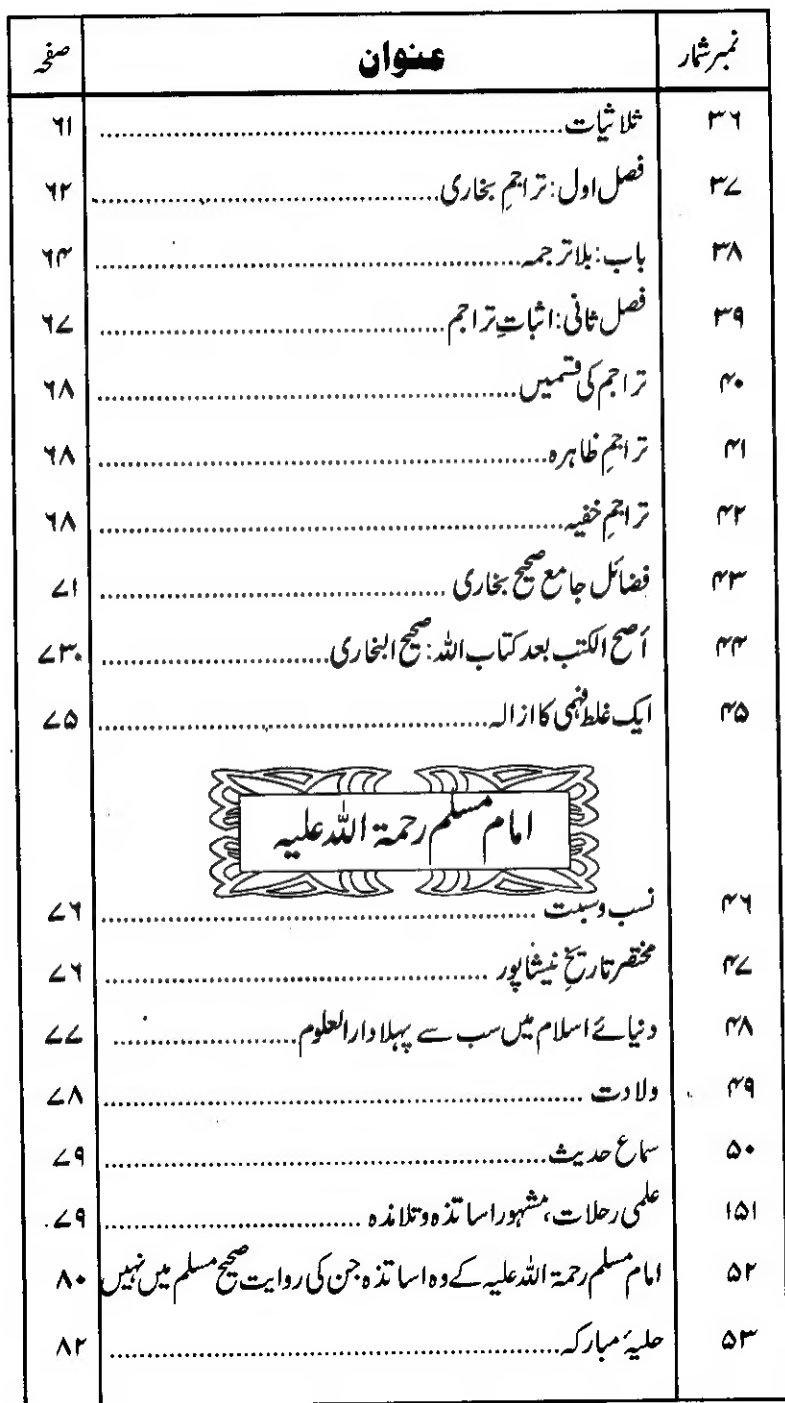 نمبر شمار عنوان صفحہ
۳۶ ثلاثیات ۶۱
۳۷ فصل اول: تراجمِ بخاری ۶۲
۳۸ باب: بلا ترجمہ ۶۴
۳۹ فصل ثانی: اثباتِ تراجم ۶۷
۴۰ تراجم کی قسمیں ۶۸
۴۱ تراجمِ ظاہرہ ۶۸
۴۲ تراجمِ خفیہ ۶۸
۴۳ فضائل جامع صحیح بخاری ۷۱
۴۴ أصح الکتب بعد کتاب اللہ: صحیح البخاری ۷۳
۴۵ ایک غلط فہمی کا ازالہ ۷۵
امام مسلم رحمۃ اللہ علیہ
۴۶ نسب وسبت ۷۶
۴۷ مختصر تاریخِ نیشاپور ۷۶
۴۸ دنیائے اسلام میں سب سے پہلا دار العلوم ۷۷
۴۹ ولادت ۷۸
۵۰ سماع حدیث ۷۹
۱۵۱ علمی رحلات، مشہور اساتذہ وتلامذہ ۷۹
۵۲ امام مسلم رحمۃ اللہ علیہ کے وہ اساتذہ جن کی روایت صحیح مسلم میں نہیں ۸۰
۵۳ حلیۂ مبارکہ ۸۲